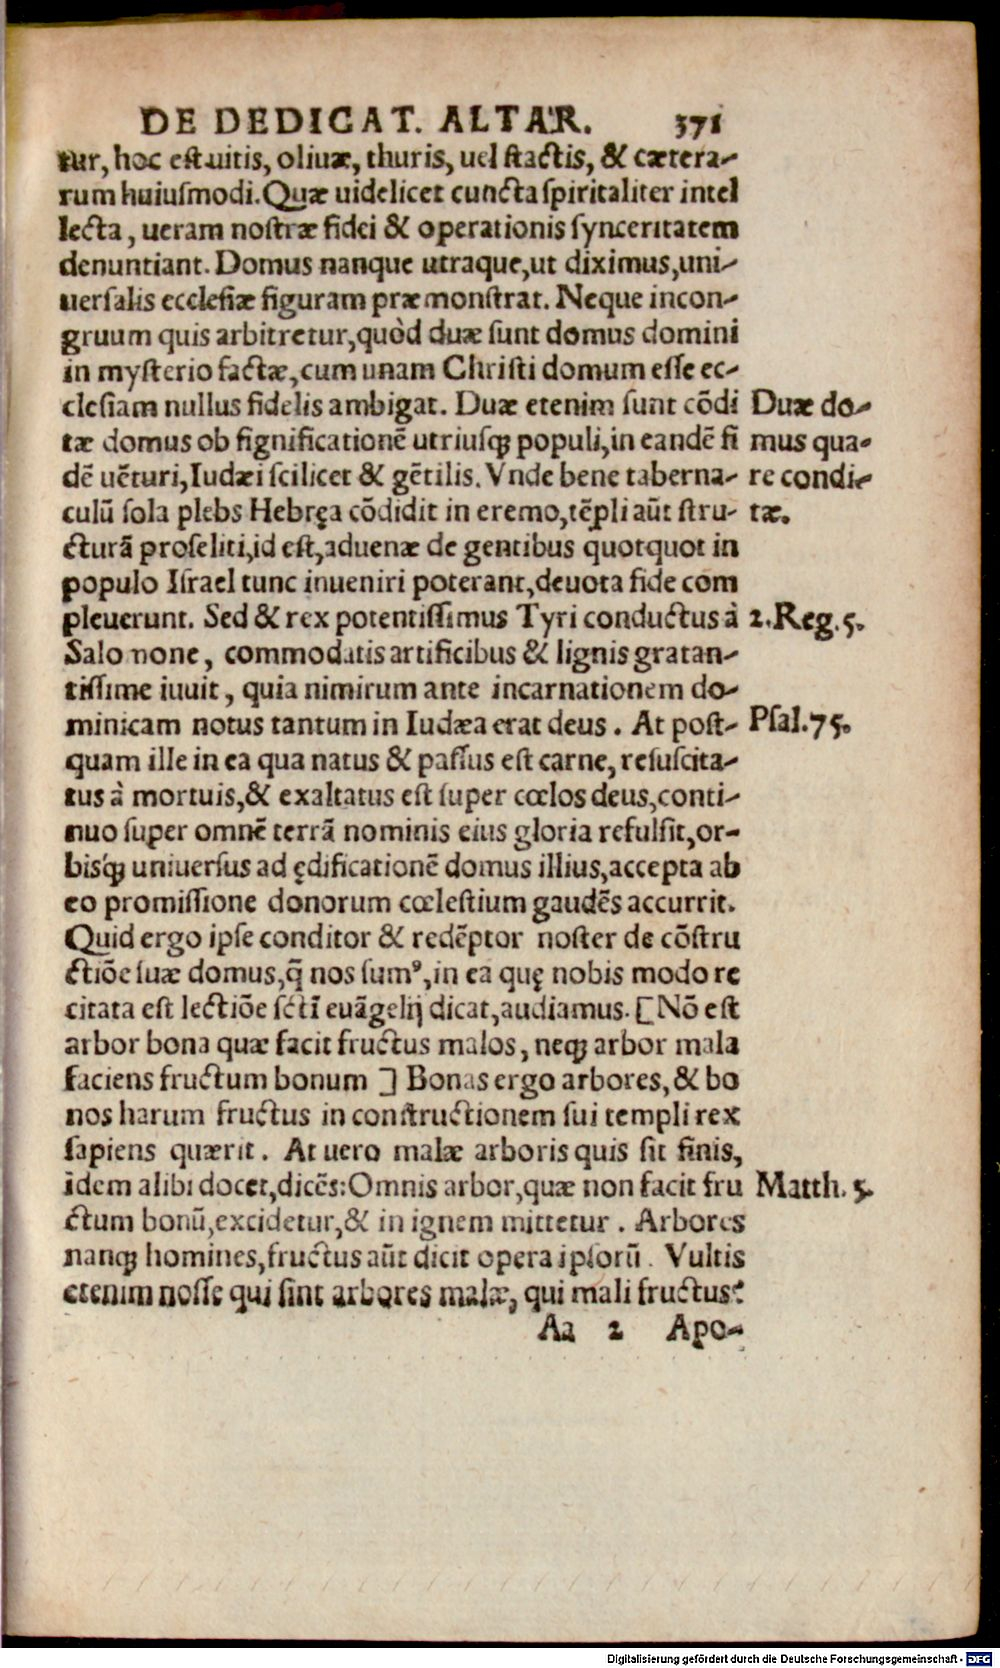 DE DEDICAT. ALTAR. 371
tur, hoc est uitis, oliuæ, thuris, uel stactis, & cætera-
rum huiusmodi. Quæ uidelicet cuncta spiritaliter intel
lecta, ueram nostræ fidei & operationis synceritatem
denuntiant. Domus nanque utraque, ut diximus, uni-
uersalis ecclesiæ figuram præmonstrat. Neque incon-
gruum quis arbitretur, quòd duæ sunt domus domini
in mysterio factæ, cum unam Christi domum esse ec-
clesiam nullus fidelis ambigat. Duæ etenim sunt cōdi Duæ do-
tæ domus ob significationē utriusq; populi, in eandē fi mus qua-
dē uēturi, Iudæi scilicet & gētilis. Vnde bene taberna- re condi-
culū sola plebs Hebręa cōdidit in eremo, tēpli aūt stru- tæ.
cturā proseliti, id est, aduenæ de gentibus quotquot in
populo Israel tunc inueniri poterant, deuota fide com
pleuerunt. Sed & rex potentissimus Tyri conductus à 2. Reg. 5.
Salomone, commodatis artificibus & lignis gratan-
tissime iuuit, quia nimirum ante incarnationem do-
minicam notus tantum in Iudæa erat deus. At post- Psal. 75.
quam ille in ea qua natus & passus est carne, resuscita-
tus à mortuis, & exaltatus est super cœlos deus, conti-
nuo super omnē terrā nominis eius gloria refulsit, or-
bisq́; uniuersus ad ędificationē domus illius, accepta ab
eo promissione donorum cœlestium gaudēs accurrit.
Quid ergo ipse conditor & redēptor noster de cōstru
ctiōe suæ domus, q̄ nos sumꝰ, in ea quę nobis modo re
citata est lectiōe scti̅ euāgelij dicat, audiamus. [Nō est
arbor bona quæ facit fructus malos, neq; arbor mala
faciens fructum bonum ] Bonas ergo arbores, & bo
nos harum fructus in constructionem sui templi rex
sapiens quærit. At uero malæ arboris quis sit finis,
idem alibi docet, dicēs: Omnis arbor, quæ non facit fru Matth. 5.
ctum bonū, excidetur, & in ignem mittetur. Arbores
nanq; homines, fructus aūt dicit opera ipsorū. Vultis
etenim nosse qui sint arbores malæ, qui mali fructus?
Aa 2 Apo-
Digitalisierung gefördert durch die Deutsche Forschungsgemeinschaft - DFG